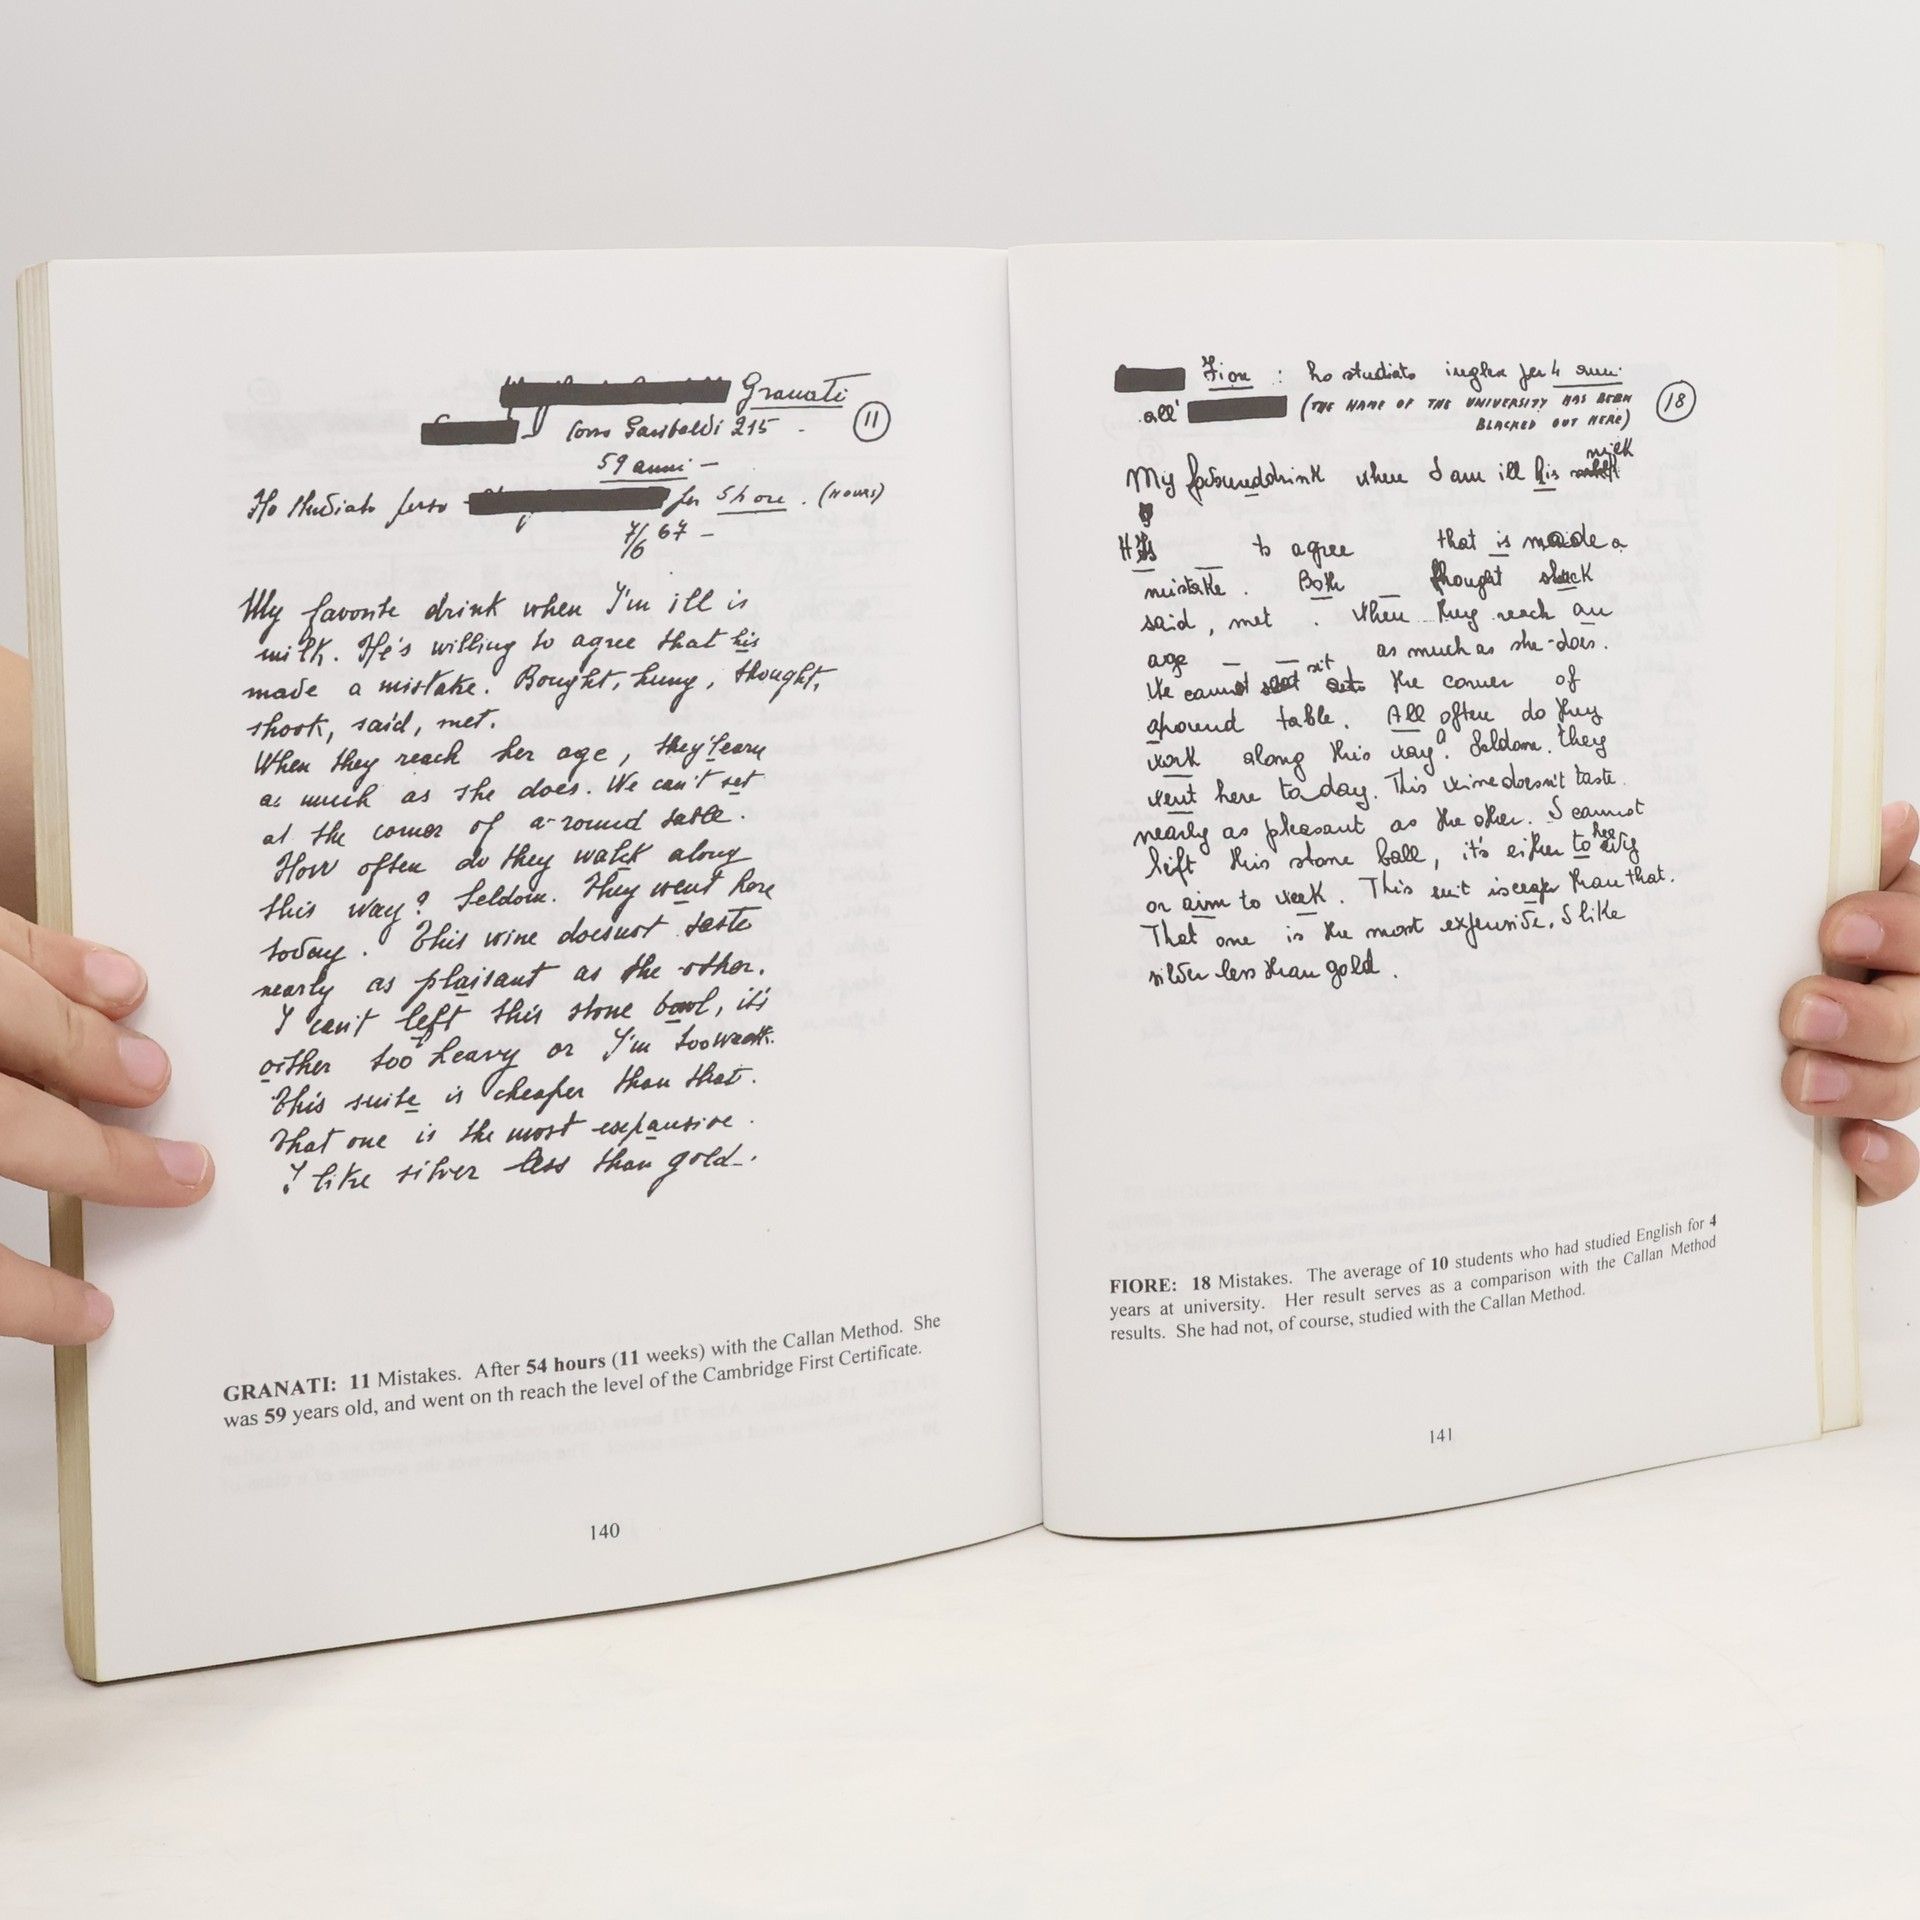 Granati
11
Corso Garibaldi 215 -
59 anni -
Ho studiato presso for 54 ore. (HOURS)
7/6 67 -
My favorite drink when I'm ill is
milk. He's willing to agree that his
made a mistake. Bought, hung, thought,
shook, said, met.
When they reach her age, they'learn
as much as she does. We can't set
at the corner of a-round table.
How often do they walck along
this way? Seldom. They went here
today. This wine doesnot taste
nearly as plaisant as the other.
I can't left this stone bowl, it's
oither too heavy or I'm too weak.
This suite is cheaper than that.
That one is the most expansive.
I like silver less than gold.
GRANATI: 11 Mistakes. After 54 hours (11 weeks) with the Callan Method. She
was 59 years old, and went on th reach the level of the Cambridge First Certificate.
140
Fiore : ho studiato inglese per 4 anni
all' (THE NAME OF THE UNIVERSITY HAS BEEN
BLACKED OUT HERE)
18
milk
My drink when I am ill his
to agree that is made a
mistake. Both thought shack
said, met. When they reach an
age as much as she does.
sit
We cannot the corner of
around table. All often do they
work along this way? Seldom. they
went here to day. This wine doesn't taste
nearly as pleasant as the other. I cannot
left this stone ball, it's either to
or aim to week. This suit is than that.
That one is the most expensive. I like
silver less than gold.
FIORE: 18 Mistakes. The average of 10 students who had studied English for 4
years at university. Her result serves as a comparison with the Callan Method
results. She had not, of course, studied with the Callan Method.
141